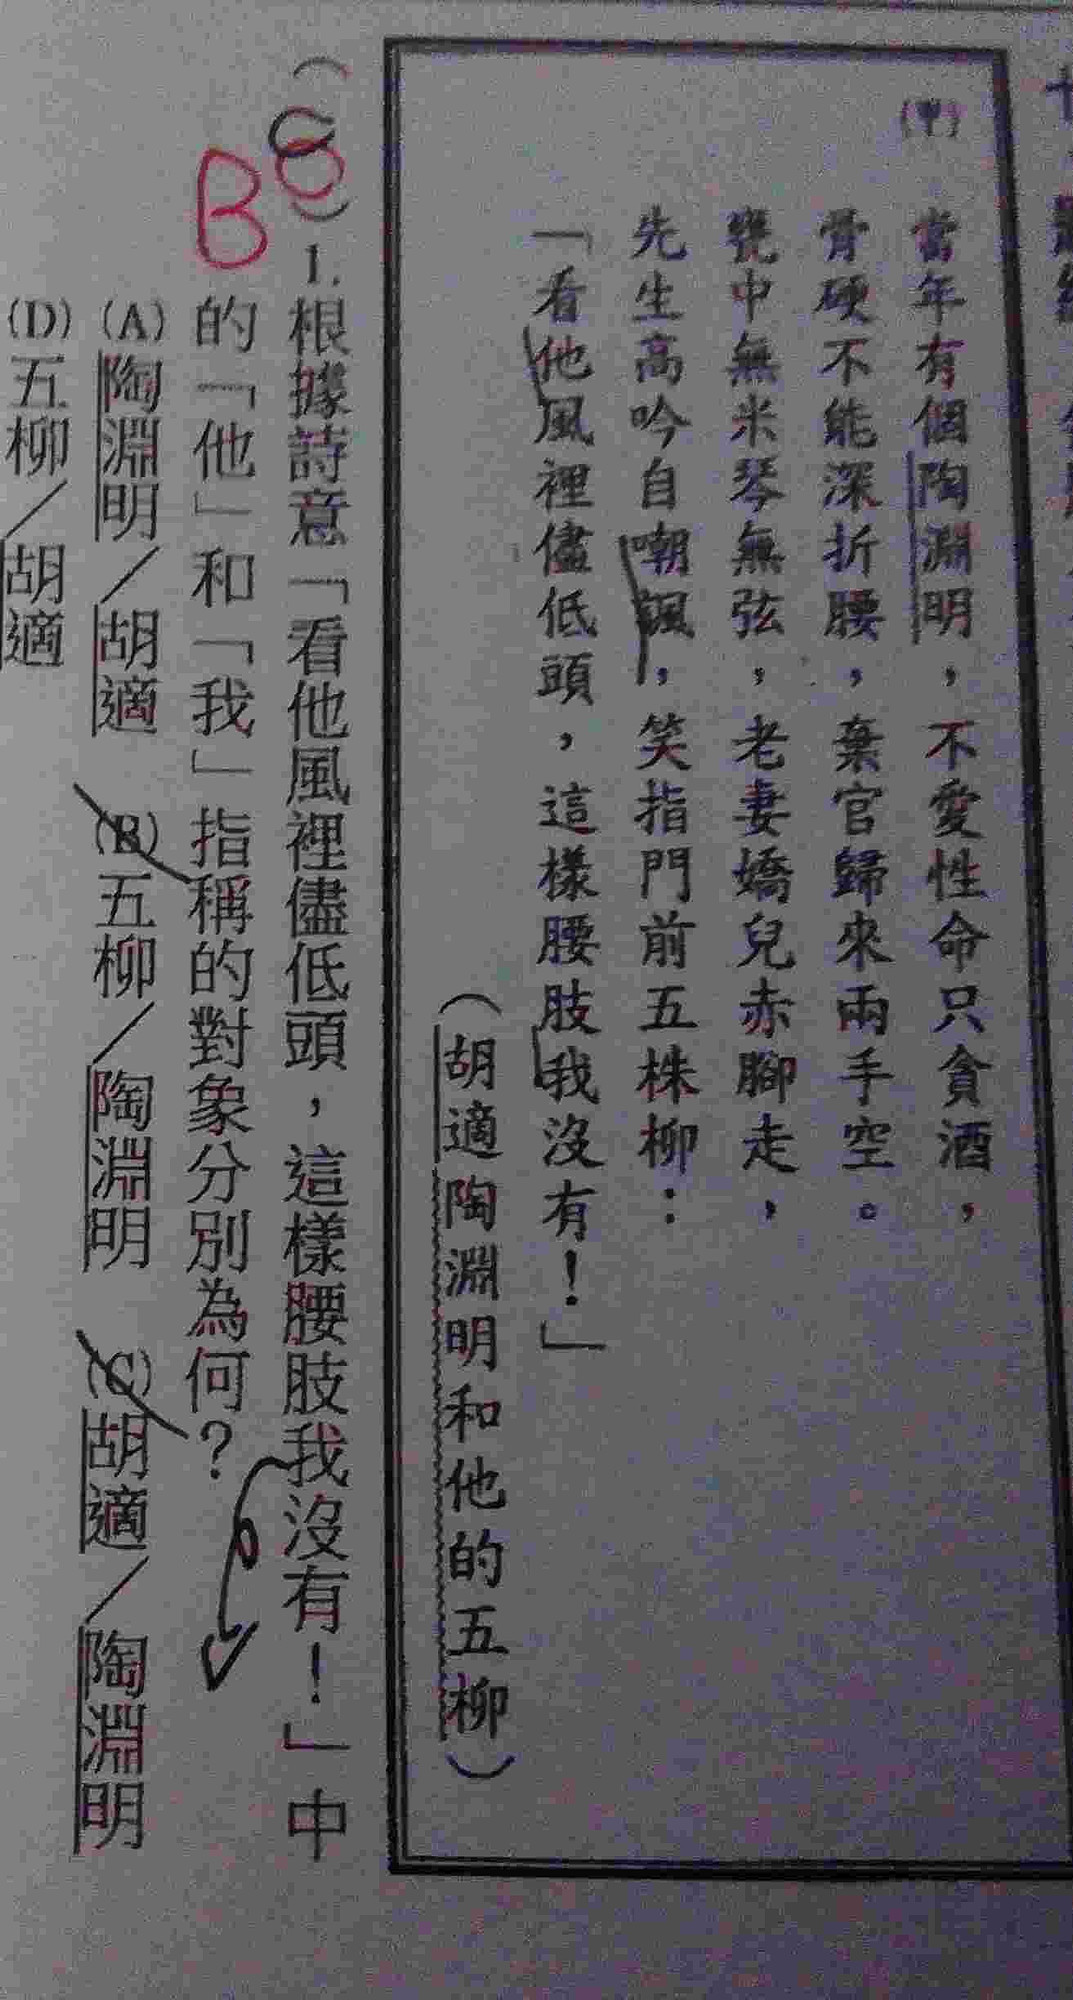 (甲)
當年有個陶淵明，不愛性命只貪酒，
骨硬不能深折腰，棄官歸來兩手空。
甕中無米琴無弦，老妻嬌兒赤腳走，
先生高吟自嘲諷，笑指門前五株柳：
「看他風裡儘低頭，這樣腰肢我沒有！」
（胡適陶淵明和他的五柳）
( C ) 1. 根據詩意「看他風裡儘低頭，這樣腰肢我沒有！」中
B
的「他」和「我」指稱的對象分別為何？
(A)陶淵明／胡適 (B)五柳／陶淵明 (C)胡適／陶淵明
(D)五柳／胡適